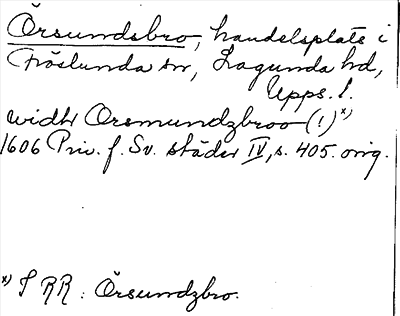 Örsundsbro, handelsplats i
Fröslunda sn, Lagunda hd,
Upps. l.
widh Orsmundzbroo (!) x)
1606 Priv. f. Sv. städer IV, s. 405. orig.
x) I RR : Örsundzbro.